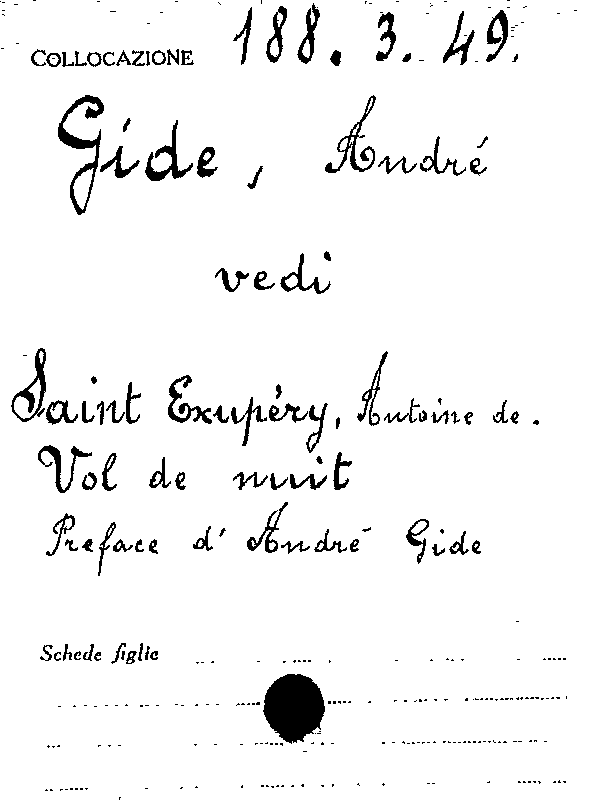 COLLOCAZIONE 188. 3. 49.
Gide, André
vedi
Saint Exupéry, Antoine de.
Vol de nuit
Preface d' André Gide
Schede figlie